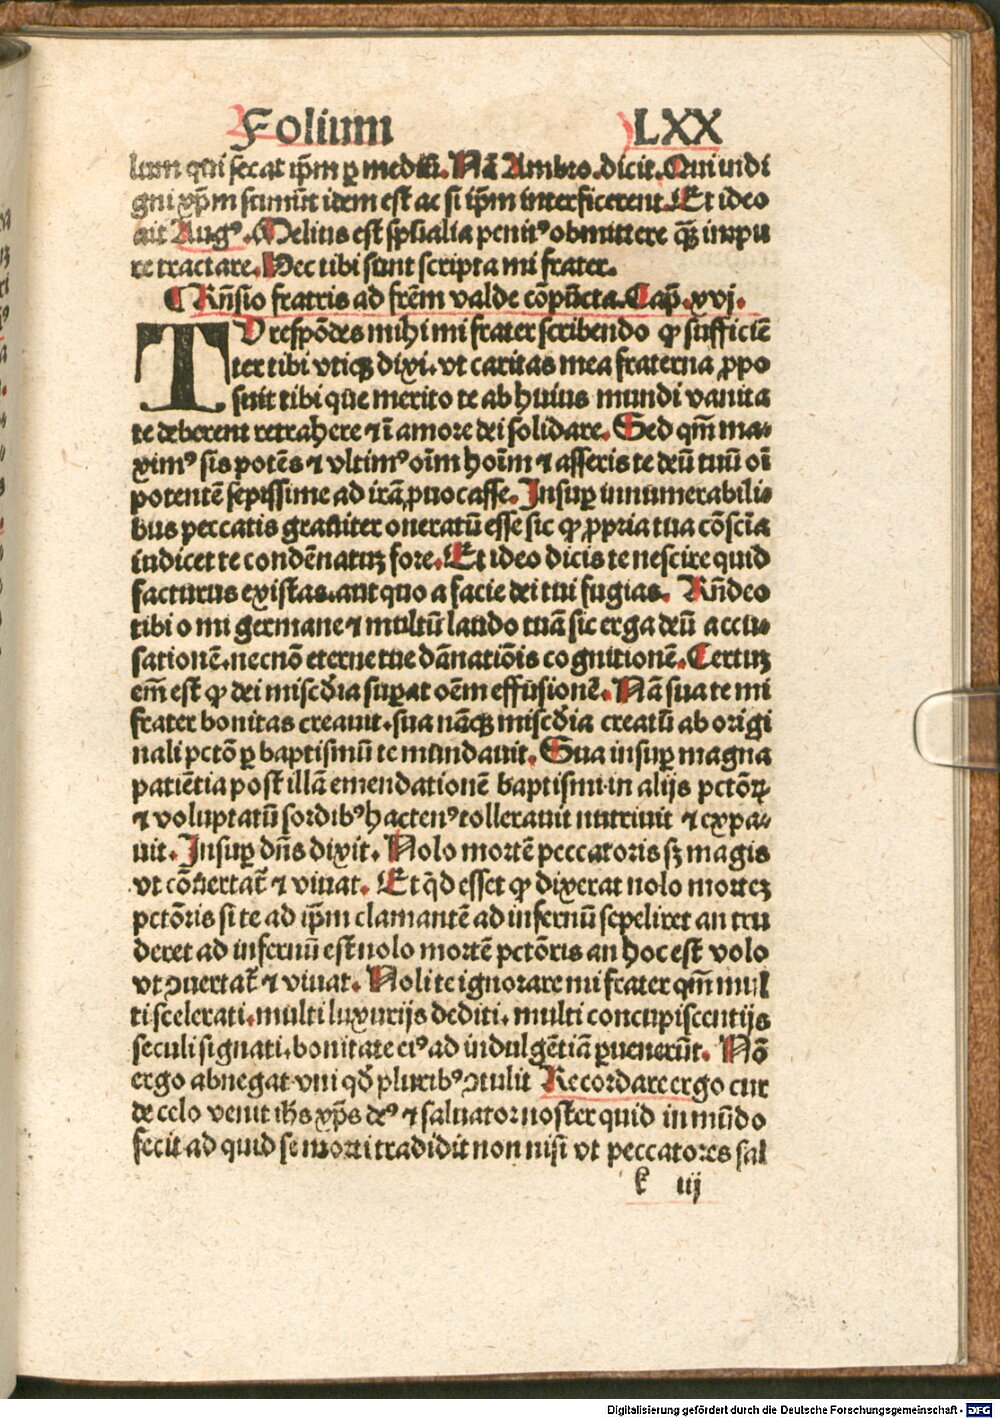 Folium LXX
lum qui secat ip̄m ꝑ mediū. Nā Ambro. dicit. Qui indi
gni xp̄m sumūt idem est ac si ip̄m interficerent. Et ideo
ait Augꝰ. Melius est sp̄ualia penitꝰ obmittere qȝ̄ inpu
re tractare. Hec tibi sunt scripta mi frater.
Rn̄sio fratris ad fr̄em valde cōpūcta. Cap̄. xvj.
TV respōdes mihi mi frater scribendo ꝙ sufficiē
ter tibi vtiqȝ dixi. vt caritas mea fraterna ꝓpo
suit tibi que merito te ab huius mundi vanita
te deberent retrahere ⁊ ī amore dei solidare. Sed qm̄ ma⸗
ximꝰ sis potēs ⁊ vltimꝰ oīm hoīm ⁊ asseris te deū tuū oī
potentē sepissime ad irā ꝓuocasse. Insuꝑ innumerabili⸗
bus peccatis grauiter oneratū esse sic ꝙ ꝓpria tua cōscīa
iudicet te condēnatuȝ fore. Et ideo dicis te nescire quid
facturus existas. aut quo a facie dei tui fugias. Rn̄deo
tibi o mi germane ⁊ multū laudo tuā sic erga deū accu⸗
sationē. necnō eterne tue dānatiōis cognitionē. Certuȝ
em̄ est ꝙ dei misc̄dia suꝑat oēm effusionē. Nā sua te mi
frater bonitas creauit. sua nāqȝ misc̄dia creatū ab origi
nali pctō ꝑ baptismū te mundauit. Sua insuꝑ magna
patiētia post illā emendationē baptismi in alijs pctōꝝ
⁊ voluptatū sordibꝰ hactenꝰ tollerauit nutriuit ⁊ expa⸗
uit. Insuꝑ dn̄s dixit. Nolo mortē peccatoris sȝ magis
vt cōuertat̄ ⁊ viuat. Et qd̄ esset ꝙ dixerat nolo morteȝ
pctōris si te ad ip̄m clamantē ad infernū sepeliret an tru
deret ad infernū est nolo mortē pctōris an hoc est volo
vt ↄuertat̄ ⁊ viuat. Noli te ignorare mi frater qm̄ mul
ti scelerati. multi luxurijs dediti. multi concupiscentijs
seculi signati. bonitate eiꝰ ad indulgētiā ꝑuenerūt. Nō
ergo abnegat vni qd̄ pluribꝰ ↄtulit Recordare ergo cur
de celo venit ih̄s xp̄s deꝰ ⁊ saluator noster quid in mūdo
fecit ad quid se morti tradidit non nisi vt peccatores sal
k iij
Digitalisierung gefördert durch die Deutsche Forschungsgemeinschaft - DFG